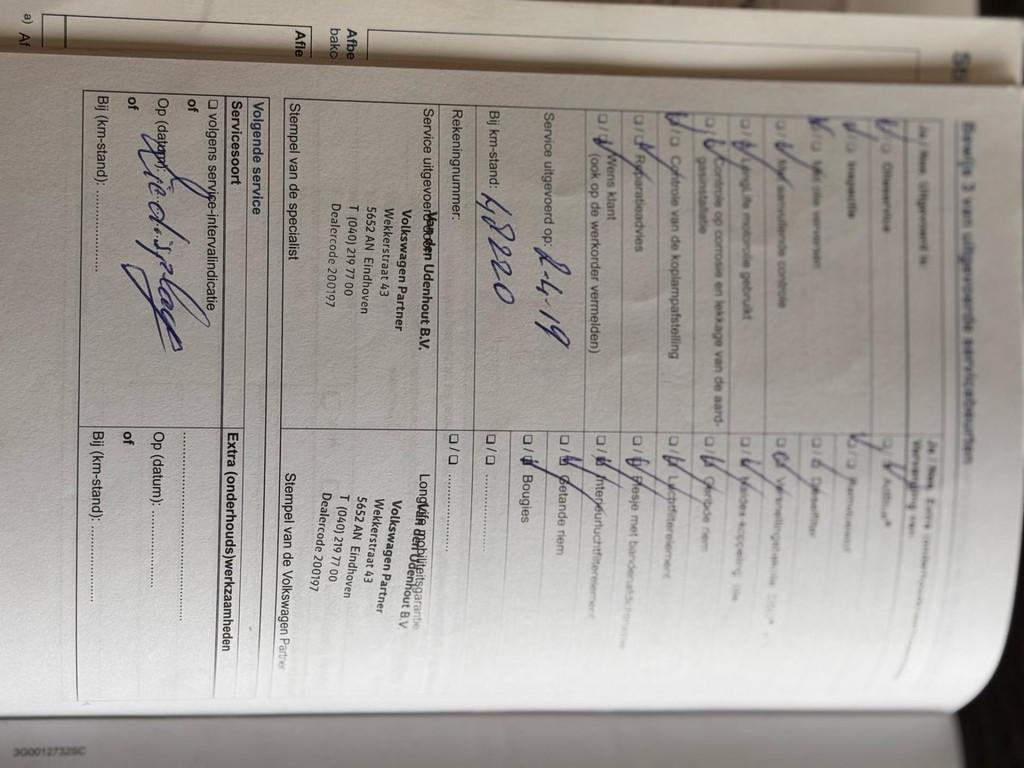 Bewijs 3 van uitgevoerde servicebeurten
Ja / Nee, Uitgevoerd is:
☑/☐ Olieservice
☑/☐ Inspectie
☑/☐ Met olie verversen
☐/☑ Met aanvullende controle
☐/☑ LongLife motorolie gebruikt
☐/☑ Controle op corrosie en lekkage van de aard-
gasinstallatie
☑/☐ Controle van de koplampafstelling
☐/☑ Reparatieadvies
☐/☑ Wens klant
(ook op de werkorder vermelden)
Service uitgevoerd op: 2-4-19
Bij km-stand: 48220
Rekeningnummer:
Service uitgevoerd door:
Van den Udenhout B.V.
Volkswagen Partner
Wekkerstraat 43
5652 AN Eindhoven
T (040) 219 77 00
Dealercode 200197
Stempel van de specialist
Ja / Nee, Extra
Vervanging van:
☐/☑ AdBlue®
☑/☐ Remvloeistof
☐/☑ Dieselfilter
☐/☑ Haldex-koppeling: olie
☐/☑ Geribde riem
☐/☑ Luchtfilterelement
☐/☑ Flesje met bandenafdichtmiddel
☐/☑ Interieurluchtfilterelement
☐/☑ Getande riem
☐/☑ Bougies
☐/☐ ....................
☐/☐ ....................
LongLife mobiliteitsgarantie
Van den Udenhout B.V.
Volkswagen Partner
Wekkerstraat 43
5652 AN Eindhoven
T (040) 219 77 00
Dealercode 200197
Stempel van de Volkswagen Partner
Volgende service
Servicesoort
☐ volgens service-intervalindicatie
of
Op (datum): Zie display
of
Bij (km-stand): ....................
Extra (onderhouds)werkzaamheden
....................
Op (datum): ....................
of
Bij (km-stand): ....................
Afbe
bako
Afle
a) Af
3G0012732SC